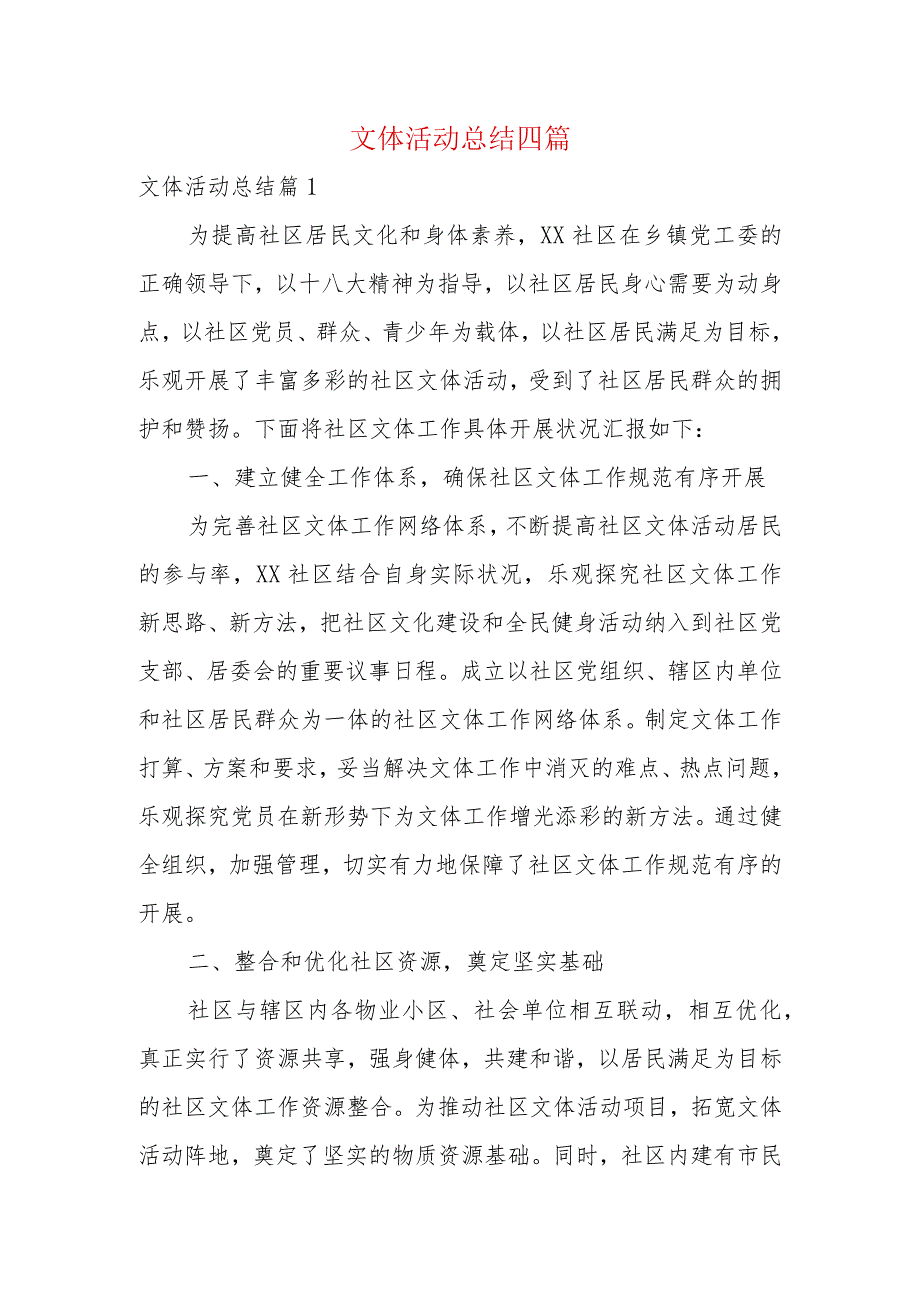 文体活动总结四篇
文体活动总结篇 1
为提高社区居民文化和身体素养，XX 社区在乡镇党工委的
正确领导下，以十八大精神为指导，以社区居民身心需要为动身
点，以社区党员、群众、青少年为载体，以社区居民满足为目标，
乐观开展了丰富多彩的社区文体活动，受到了社区居民群众的拥
护和赞扬。下面将社区文体工作具体开展状况汇报如下：
一、建立健全工作体系，确保社区文体工作规范有序开展
为完善社区文体工作网络体系，不断提高社区文体活动居民
的参与率，XX 社区结合自身实际状况，乐观探究社区文体工作
新思路、新方法，把社区文化建设和全民健身活动纳入到社区党
支部、居委会的重要议事日程。成立以社区党组织、辖区内单位
和社区居民群众为一体的社区文体工作网络体系。制定文体工作
打算、方案和要求，妥当解决文体工作中消灭的难点、热点问题，
乐观探究党员在新形势下为文体工作增光添彩的新方法。通过健
全组织，加强管理，切实有力地保障了社区文体工作规范有序的
开展。
二、整合和优化社区资源，奠定坚实基础
社区与辖区内各物业小区、社会单位相互联动，相互优化，
真正实行了资源共享，强身健体，共建和谐，以居民满足为目标
的社区文体工作资源整合。为推动社区文体活动项目，拓宽文体
活动阵地，奠定了坚实的物质资源基础。同时，社区内建有市民